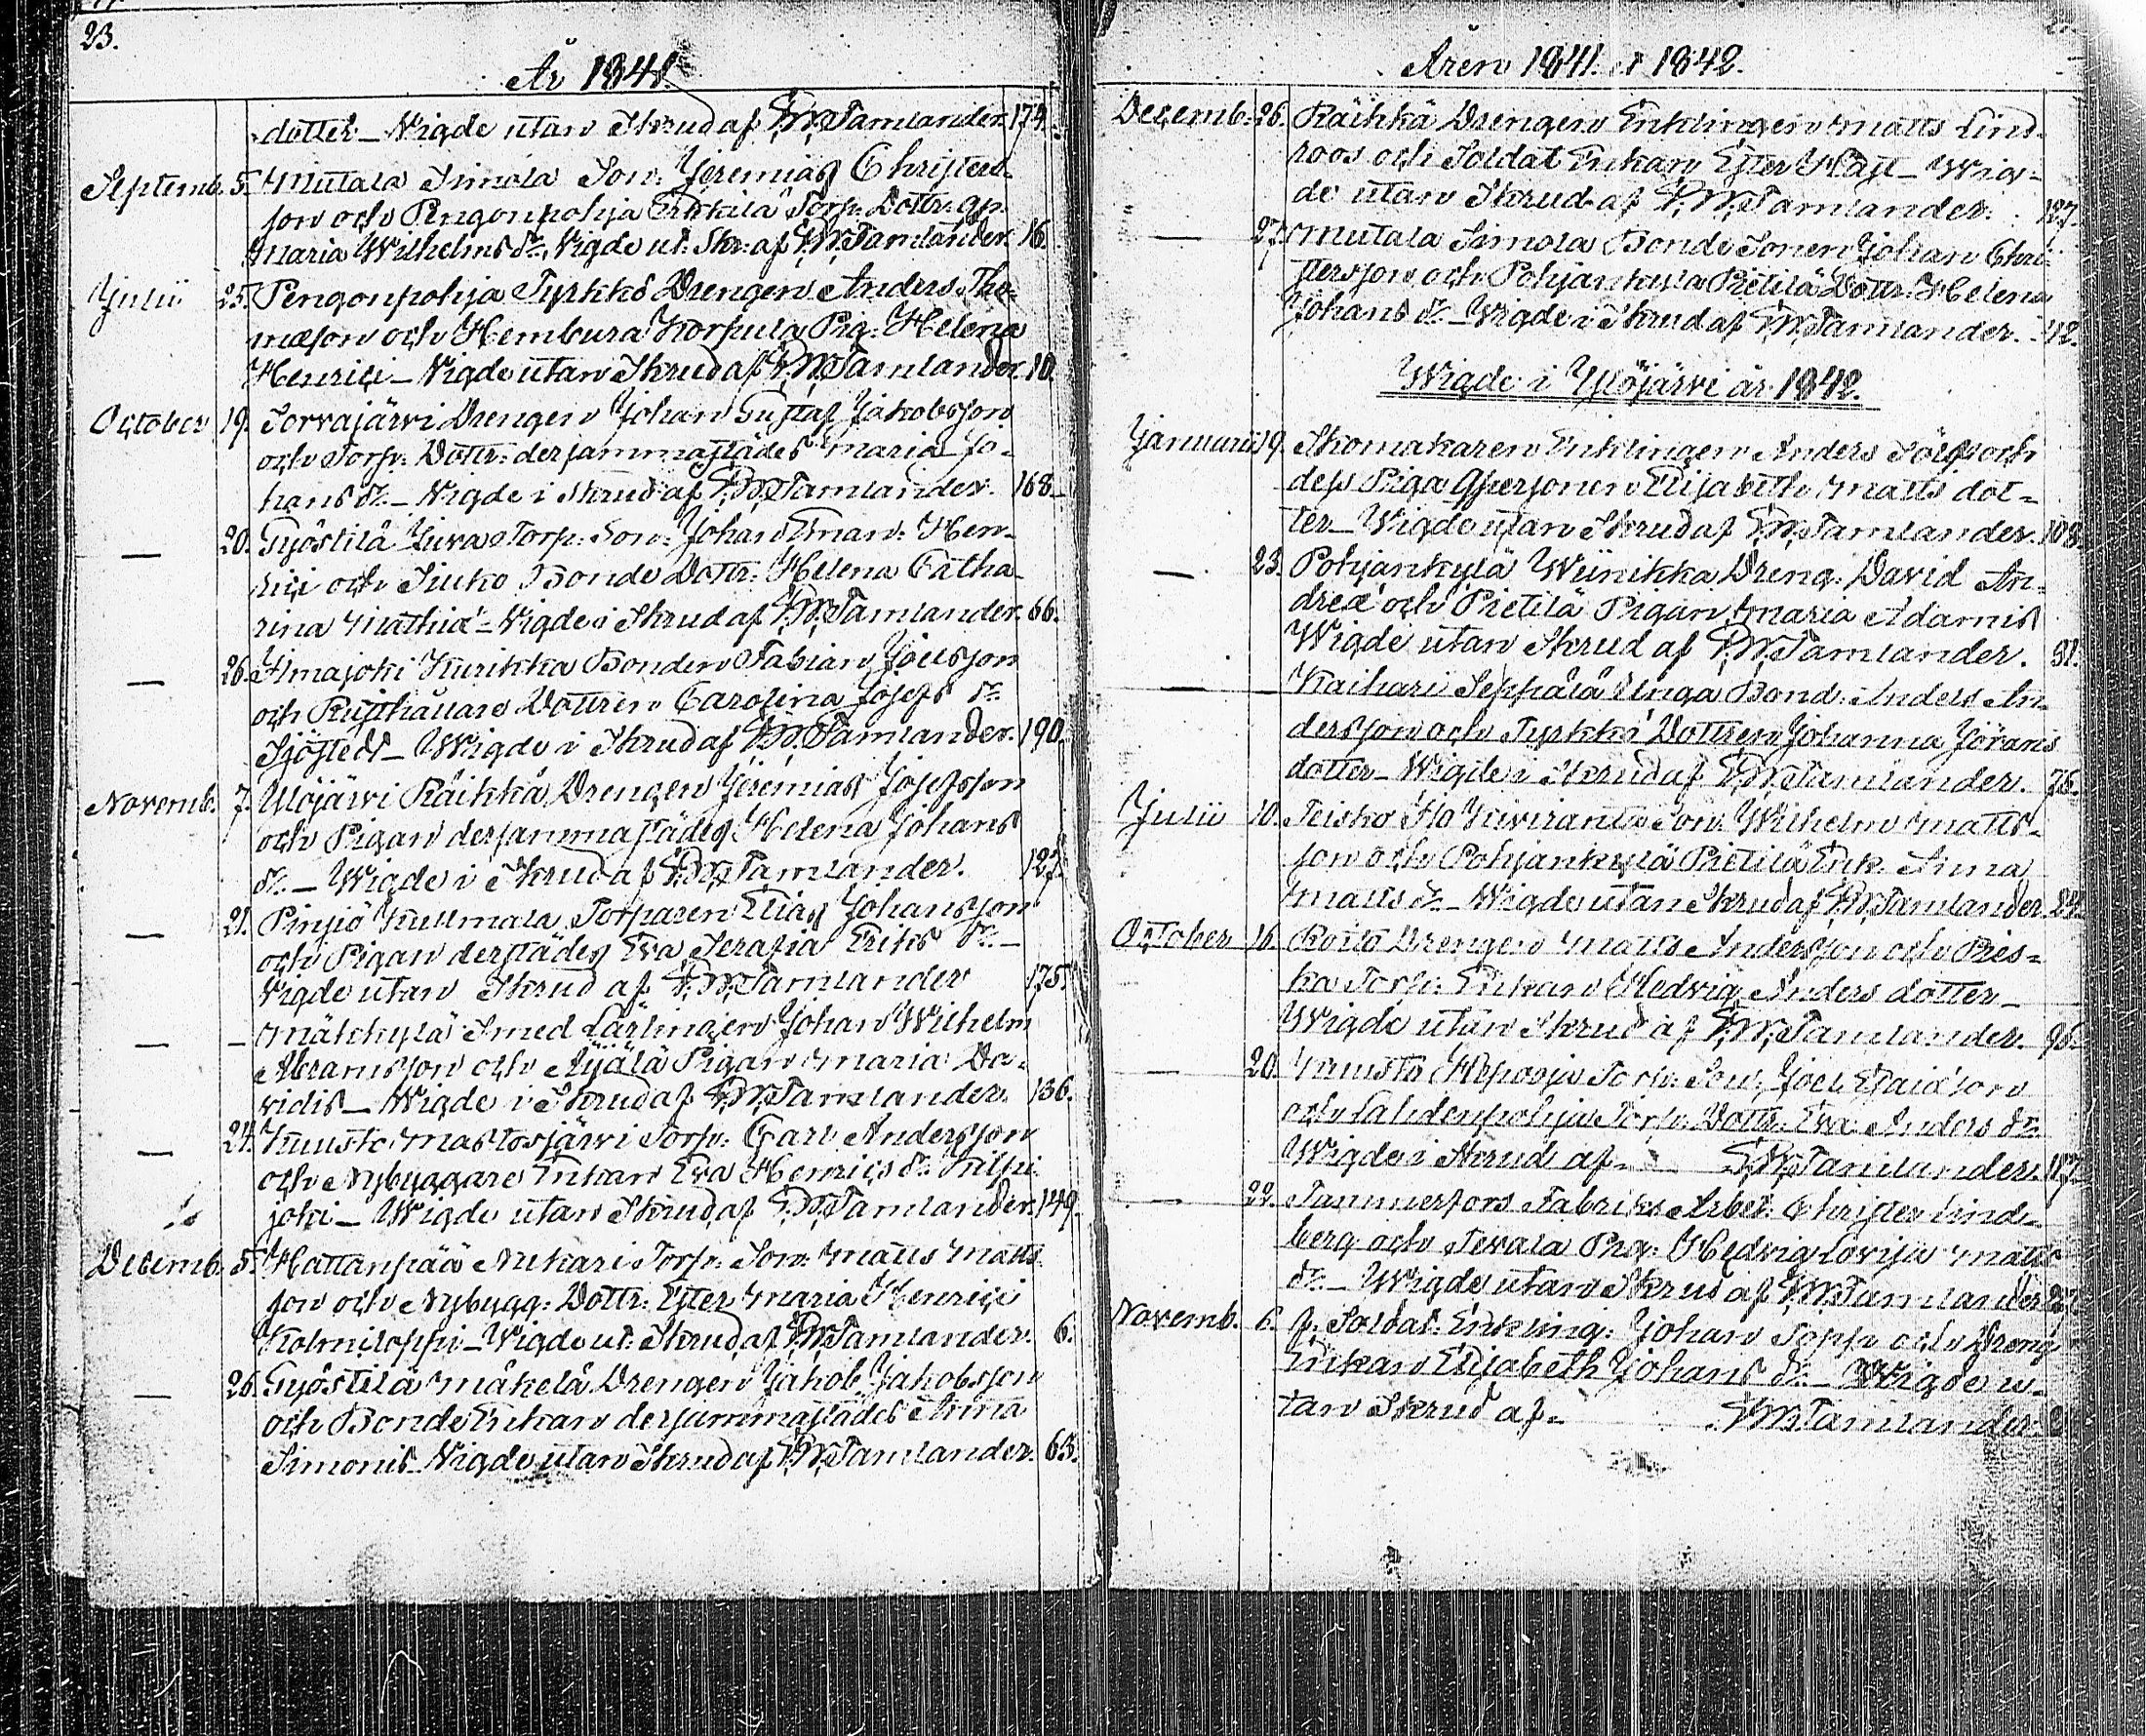 23.
År 1841.
dotter _ Vigde utan Skrud af F. W. Tamlander. 174.
Septemb. 5. Mutala Simola Son: Jeremias Christers-
son och Pengonpohja Erkkilä Torp: Dottr: qp.
Maria Wilhelms dr. Vigde ut. Skr: af F. W. Tamlander. 16.
Julii 25. Pengonpohja Tyrkkö Drengen Anders Tho-
mæson och Hembura Korpula Pig: Helena
Henrici _ Vigde utan Skrud af F. W. Tamlander. 10.
October 19. Sorvajärvi Drengen Johan Gustaf Jakobsson
och Torp: Dottr: dersammastädes Maria Jo-
hans dr. _ Vigde i Skrud af F. W. Tamlander. 168.
— 20. Gyöstilä Liuva Torp: Son: Johan Eman: Hen-
rici och Siuko Bonde Dottr: Helena Catha-
rina Mathiæ _ Vigde i Skrud af F. W. Tamlander. 66.
— 26. Ilmajoki Kurikka Bonden Fabian Joelsson
och Rusthållare Dottren Carolina Josefs dr.
Sjöstedt _ Wigde i Skrud af F. W. Tamlander. 190.
Novemb. 7. Ylöjärvi Räikkä Drengen Jeremias Josefsson
och Pigan dersammastädes Helena Johans
dr. _ Wigde i Skrud af F. W. Tamlander. 127.
— 21. Pinsiö Kullmala Torparen Elias Johansson
och Pigan derstädes Eva Serafia Eriks dr. _
Vigde utan Skrud af F. W. Tamlander 175.
— – Mälkkylä Smed Lärlingen Johan Wilhelm
Abramsson och Äijälä Pigan Maria Da-
vidis _ Wigde i Skrud af F. W. Tamlander. 136.
— 24. Kuusto Mastosjärvi Torp: Carl Andersson
och Nybyggare Enkan Eva Henrics dr. Kilpi
joki _ Wigde utan Skrud af F. W. Tamlander. 149.
Decemb. 5. Hattanpää Nekari Torp: Son: Matts Matts
son och Nybygg: Dottr: Ester Maria Henrici
Kolmiloppi _ Wigde ut. Skrud af F. W. Tamlander. 6.
— 26. Gyöstilä Mäkelä Drengen Jakob Jakobsson
och Bonde Enkan dersammastädes Anna
Simonis _ Vigde utan Skrud af F. W. Tamlander. 63.
Åren 1841. et 1842.
Decemb: 26. Räikkä Drengen Enklingen Matts Lind-
roos och Soldat Enkan Ester Wast _ Wig-
de utan Skrud af F. W. Tamlander. 127.
— 27. Mutala Simola Bonde Sonen Johan Chri-
stersson och Pohjankylä Pietilä Dottr: Helena
Johans dr. _ Wigde i Skrud af F. W. Tamlander. 42.
Wigde i Ylöjärvi år 1842.
Januarii 9. Skomakaren Enklingen Anders och
dess Piga qpersonen Elisabeth Matts dot-
ter _ Wigde utan Skrud af F. W. Tamlander. 108.
— 23. Pohjankylä Wiinikka Dreng: David An-
dreæ och Pietilä Pigan Maria Adamis
Wigde utan Skrud af F. W. Tamlander. 31.
— Kaihari Seppälä Unga Bond: Anders An-
dersson och Tyrkkö Dottren Johanna Jörans
dotter _ Wigde i Skrud af F. W. Tamlander. 76.
Julii 10. Teisko Kiviranta Son: Wilhelm Matts-
son och Pohjankylä Pietilä Enk: Anna
Matts dr. _ Wigde utan Skrud af F. W. Tamlander
October 16. Drengen Matts Andersson och Ries-
ka Torp: Enkan Hedvig Anders dotter _
Wigde utan Skrud af F. W. Tamlander. 96.
— 20. Kuusto Torp: Son: Joel Esaiæson
och Lahdenpohja Torp: Dottr: Eva Anders dr.
Wigde i Skrud af _ F. W. Tamlander. 117.
— 22. Tammerfors Fabriks Arbet: Christer Lind-
berg och Tevala Pig: Hedvig Lovisa Matts
dr. _ Wigde utan Skrud af F. W. Tamlander
Novemb. 6. f. Soldat: Enkling: Johan Sopp och Dreng
Enkan Elisabeth Johans dr. _ Wigde u-
tan Skrud af _ F. W. Tamlander.